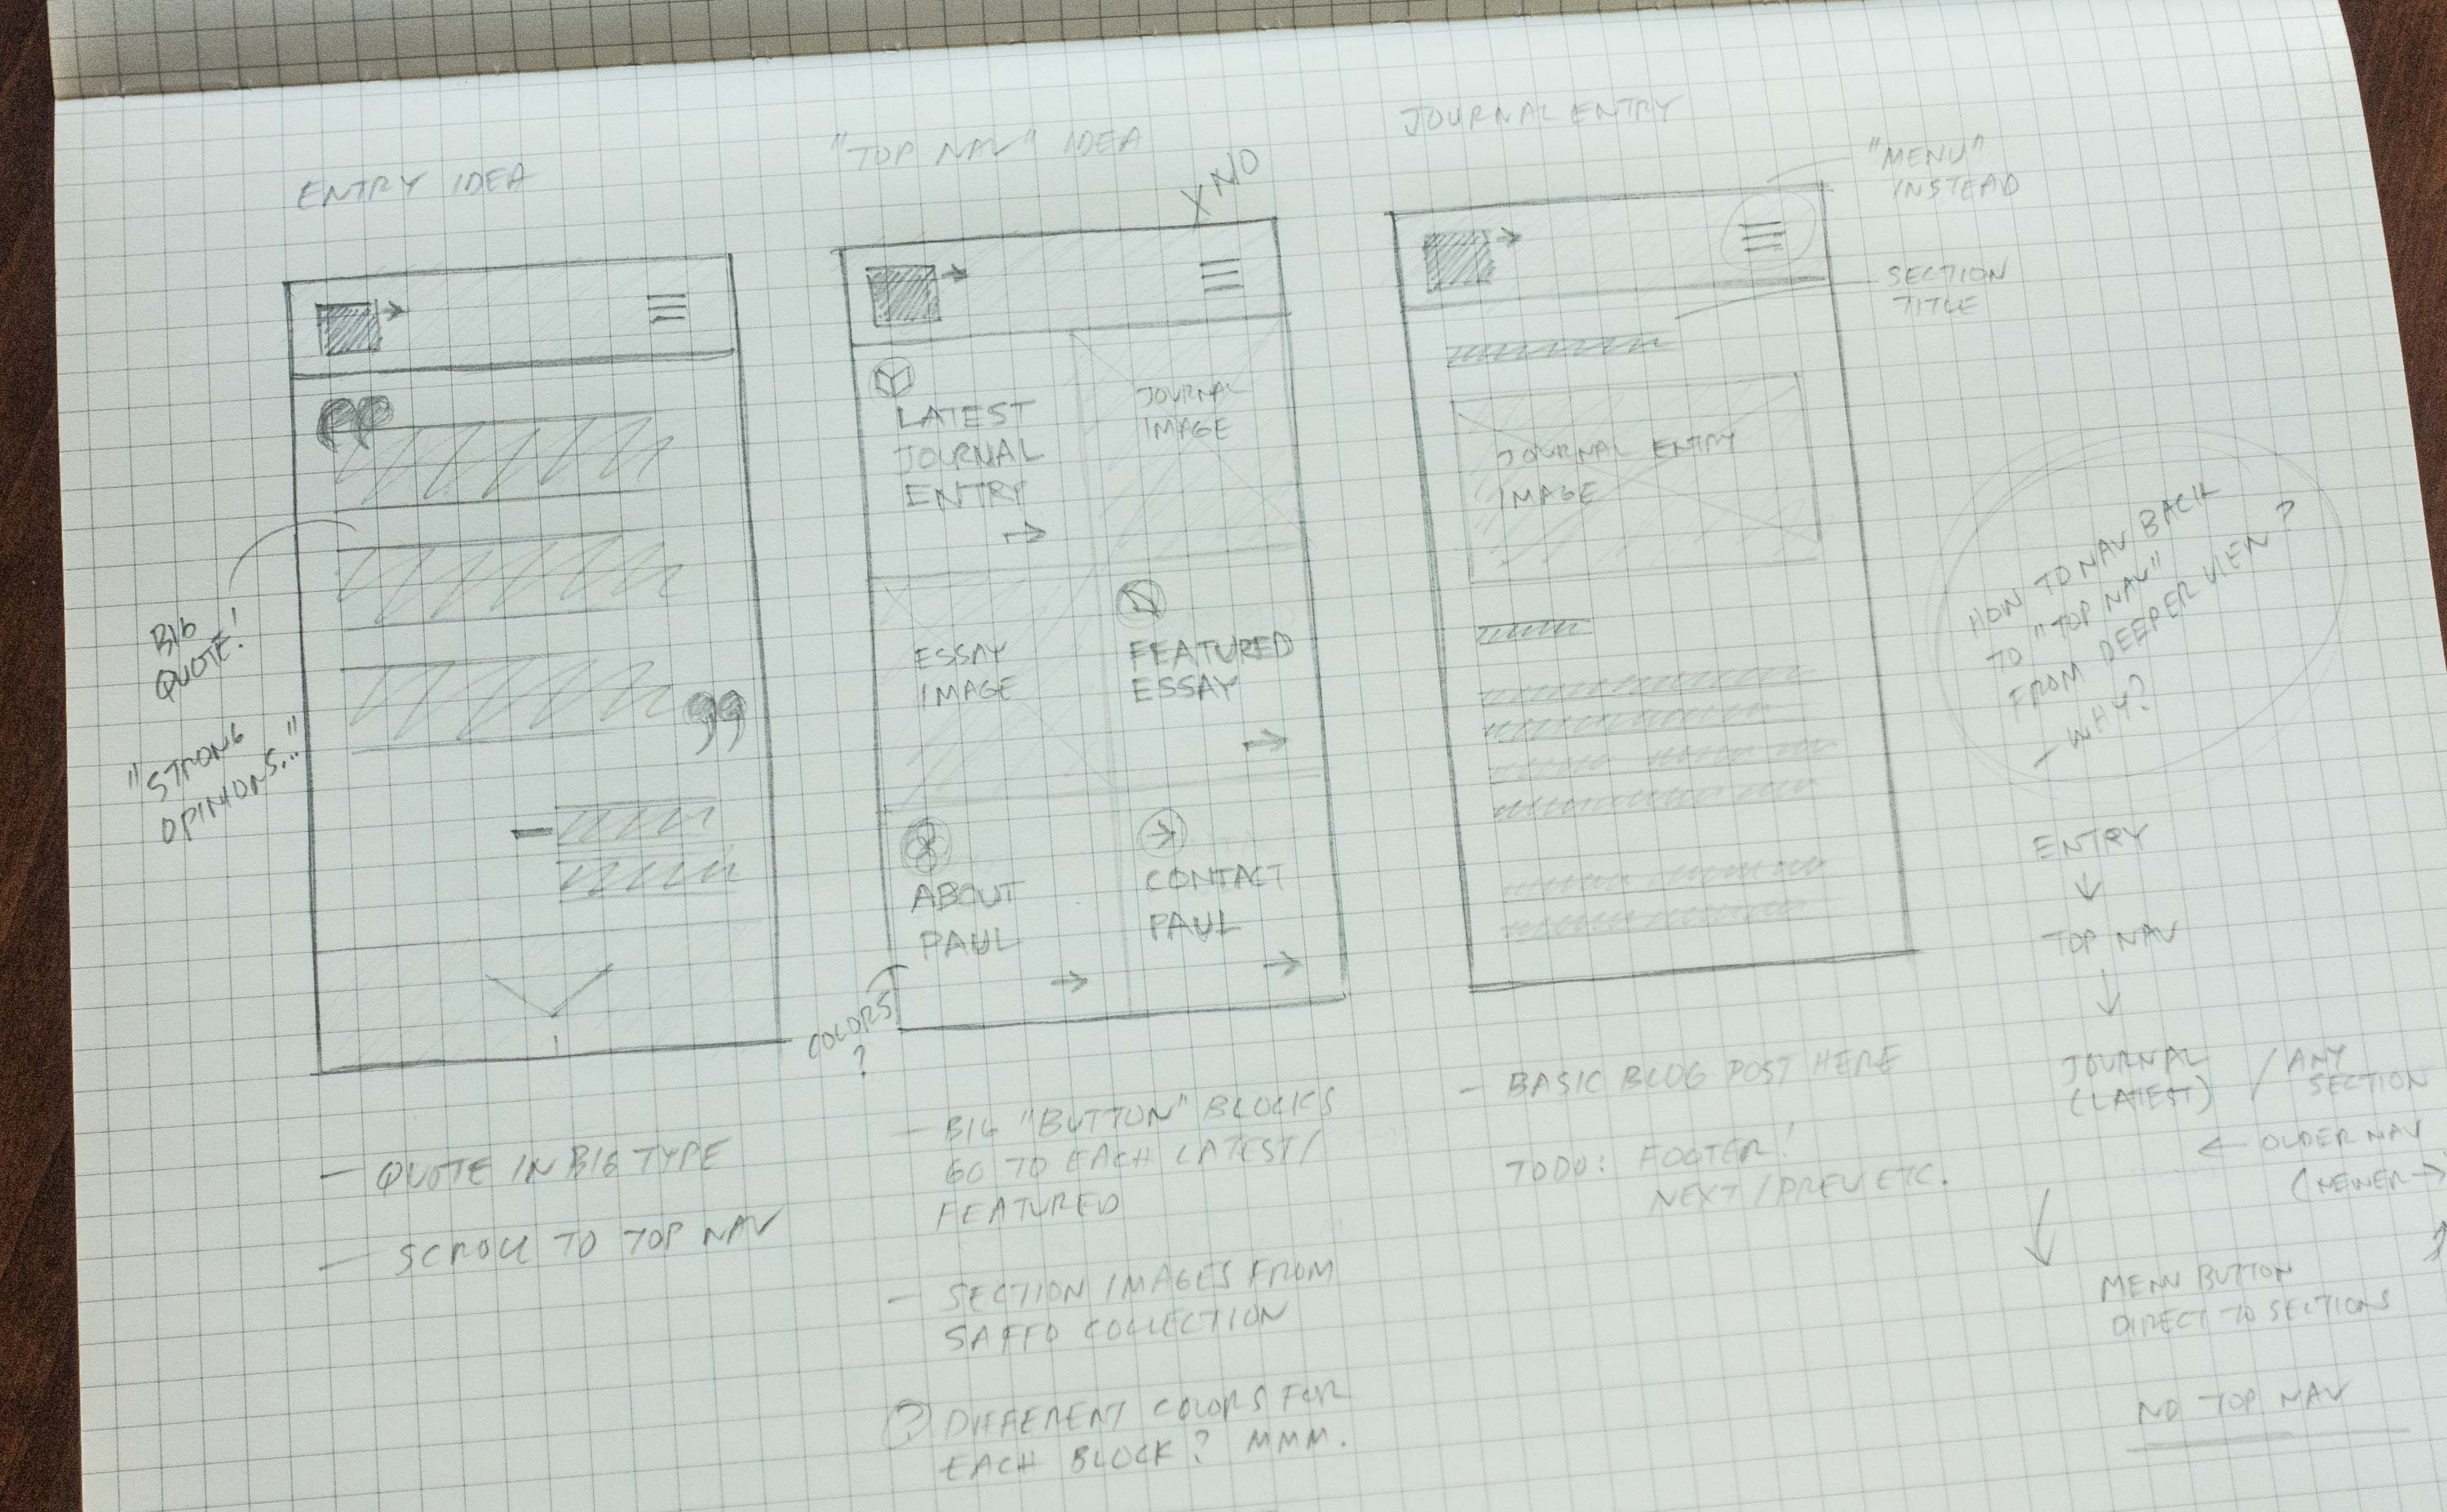 ENTRY IDEA
BIG
QUOTE!
"STRONG
OPINIONS..."
- QUOTE IN BIG TYPE
- SCROLL TO TOP NAV
"TOP NAV" IDEA
X NO
LATEST
JOURNAL
ENTRY
JOURNAL
IMAGE
ESSAY
IMAGE
FEATURED
ESSAY
ABOUT
PAUL
CONTACT
PAUL
COLORS
?
- BIG "BUTTON" BLOCKS
GO TO EACH LATEST/
FEATURED
- SECTION IMAGES FROM
SAFFO COLLECTION
? DIFFERENT COLORS FOR
EACH BLOCK? MMM.
JOURNAL ENTRY
"MENU"
INSTEAD
SECTION
TITLE
JOURNAL ENTRY
IMAGE
- BASIC BLOG POST HERE
TODO: FOOTER!
NEXT/PREV ETC.
HOW TO NAV BACK
TO "TOP NAV"
FROM DEEPER VIEW?
- WHY?
ENTRY
↓
TOP NAV
↓
JOURNAL / ANY
(LATEST) SECTION
← OLDER NAV
(NEWER →
↓
MENU BUTTON
DIRECT TO SECTIONS
NO TOP NAV